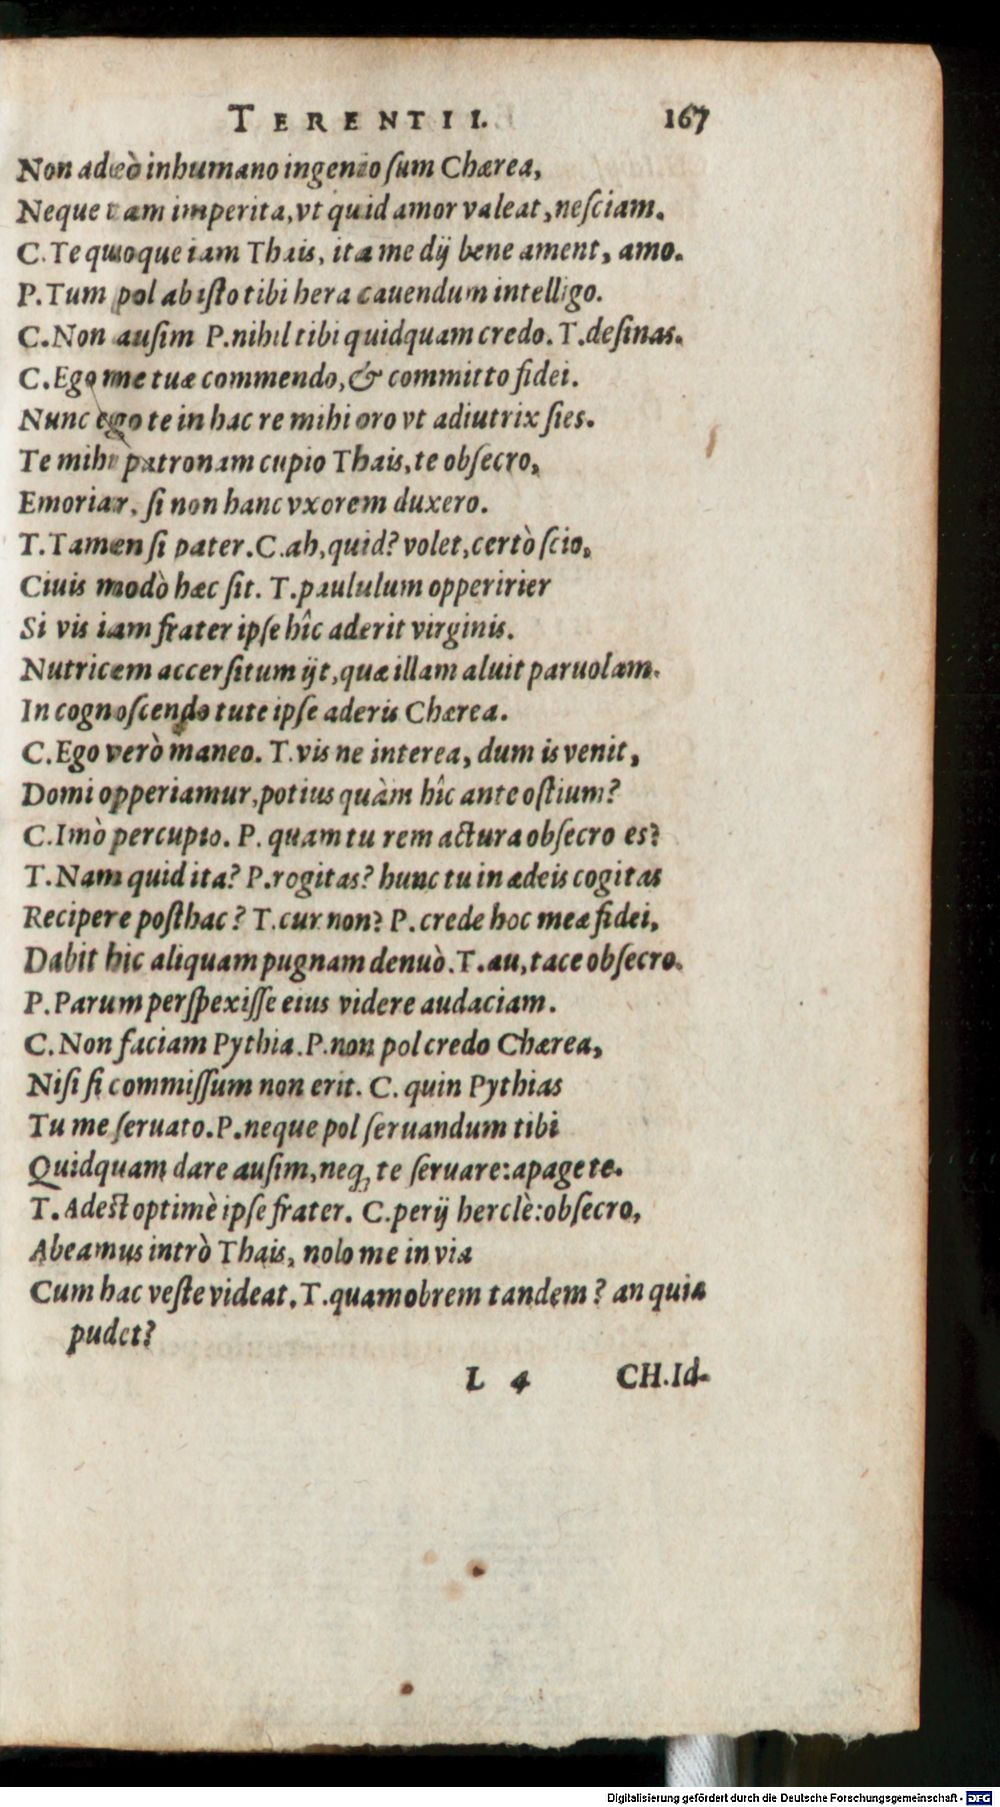 TERENTII. 167
Non adeò inhumano ingenio ſum Chærea,
Neque tam imperita, vt quid amor valeat, neſciam.
C. Te quoque iam Thais, ita me dij bene ament, amo.
P. Tum pol ab iſto tibi hera cauendum intelligo.
C. Non auſim P. nihil tibi quidquam credo. T. deſinas.
C. Ego me tuæ commendo, & committo fidei.
Nunc ego te in hac re mihi oro vt adiutrix ſies.
Te mihi patronam cupio Thais, te obſecro,
Emoriar, ſi non hanc vxorem duxero.
T. Tamen ſi pater. C. ah, quid? volet, certò ſcio,
Ciuis modò hæc ſit. T. paululum opperirier
Si vis iam frater ipſe hîc aderit virginis.
Nutricem accerſitum ijt, quæ illam aluit paruolam.
In cognoſcendo tute ipſe aderis Chærea.
C. Ego verò maneo. T. vis ne interea, dum is venit,
Domi opperiamur, potius quàm hîc ante oſtium?
C. Imò percupio. P. quam tu rem actura obſecro es?
T. Nam quid ita? P. rogitas? hunc tu in ædeis cogitas
Recipere poſthac? T. cur non? P. crede hoc meæ fidei,
Dabit hic aliquam pugnam denuò. T. au, tace obſecro.
P. Parum perſpexiſſe eius videre audaciam.
C. Non faciam Pythia. P. non pol credo Chærea,
Niſi ſi commiſſum non erit. C. quin Pythias
Tu me ſeruato. P. neque pol ſeruandum tibi
Quidquam dare auſim, neq; te ſeruare: apage te.
T. Adest optimè ipſe frater. C. perij herclè: obſecro,
Abeamus intrò Thais, nolo me in via
Cum hac veſte videat. T. quamobrem tandem? an quia
pudet?
L 4 CH. Id-
Digitalisierung gefördert durch die Deutsche Forschungsgemeinschaft - DFG